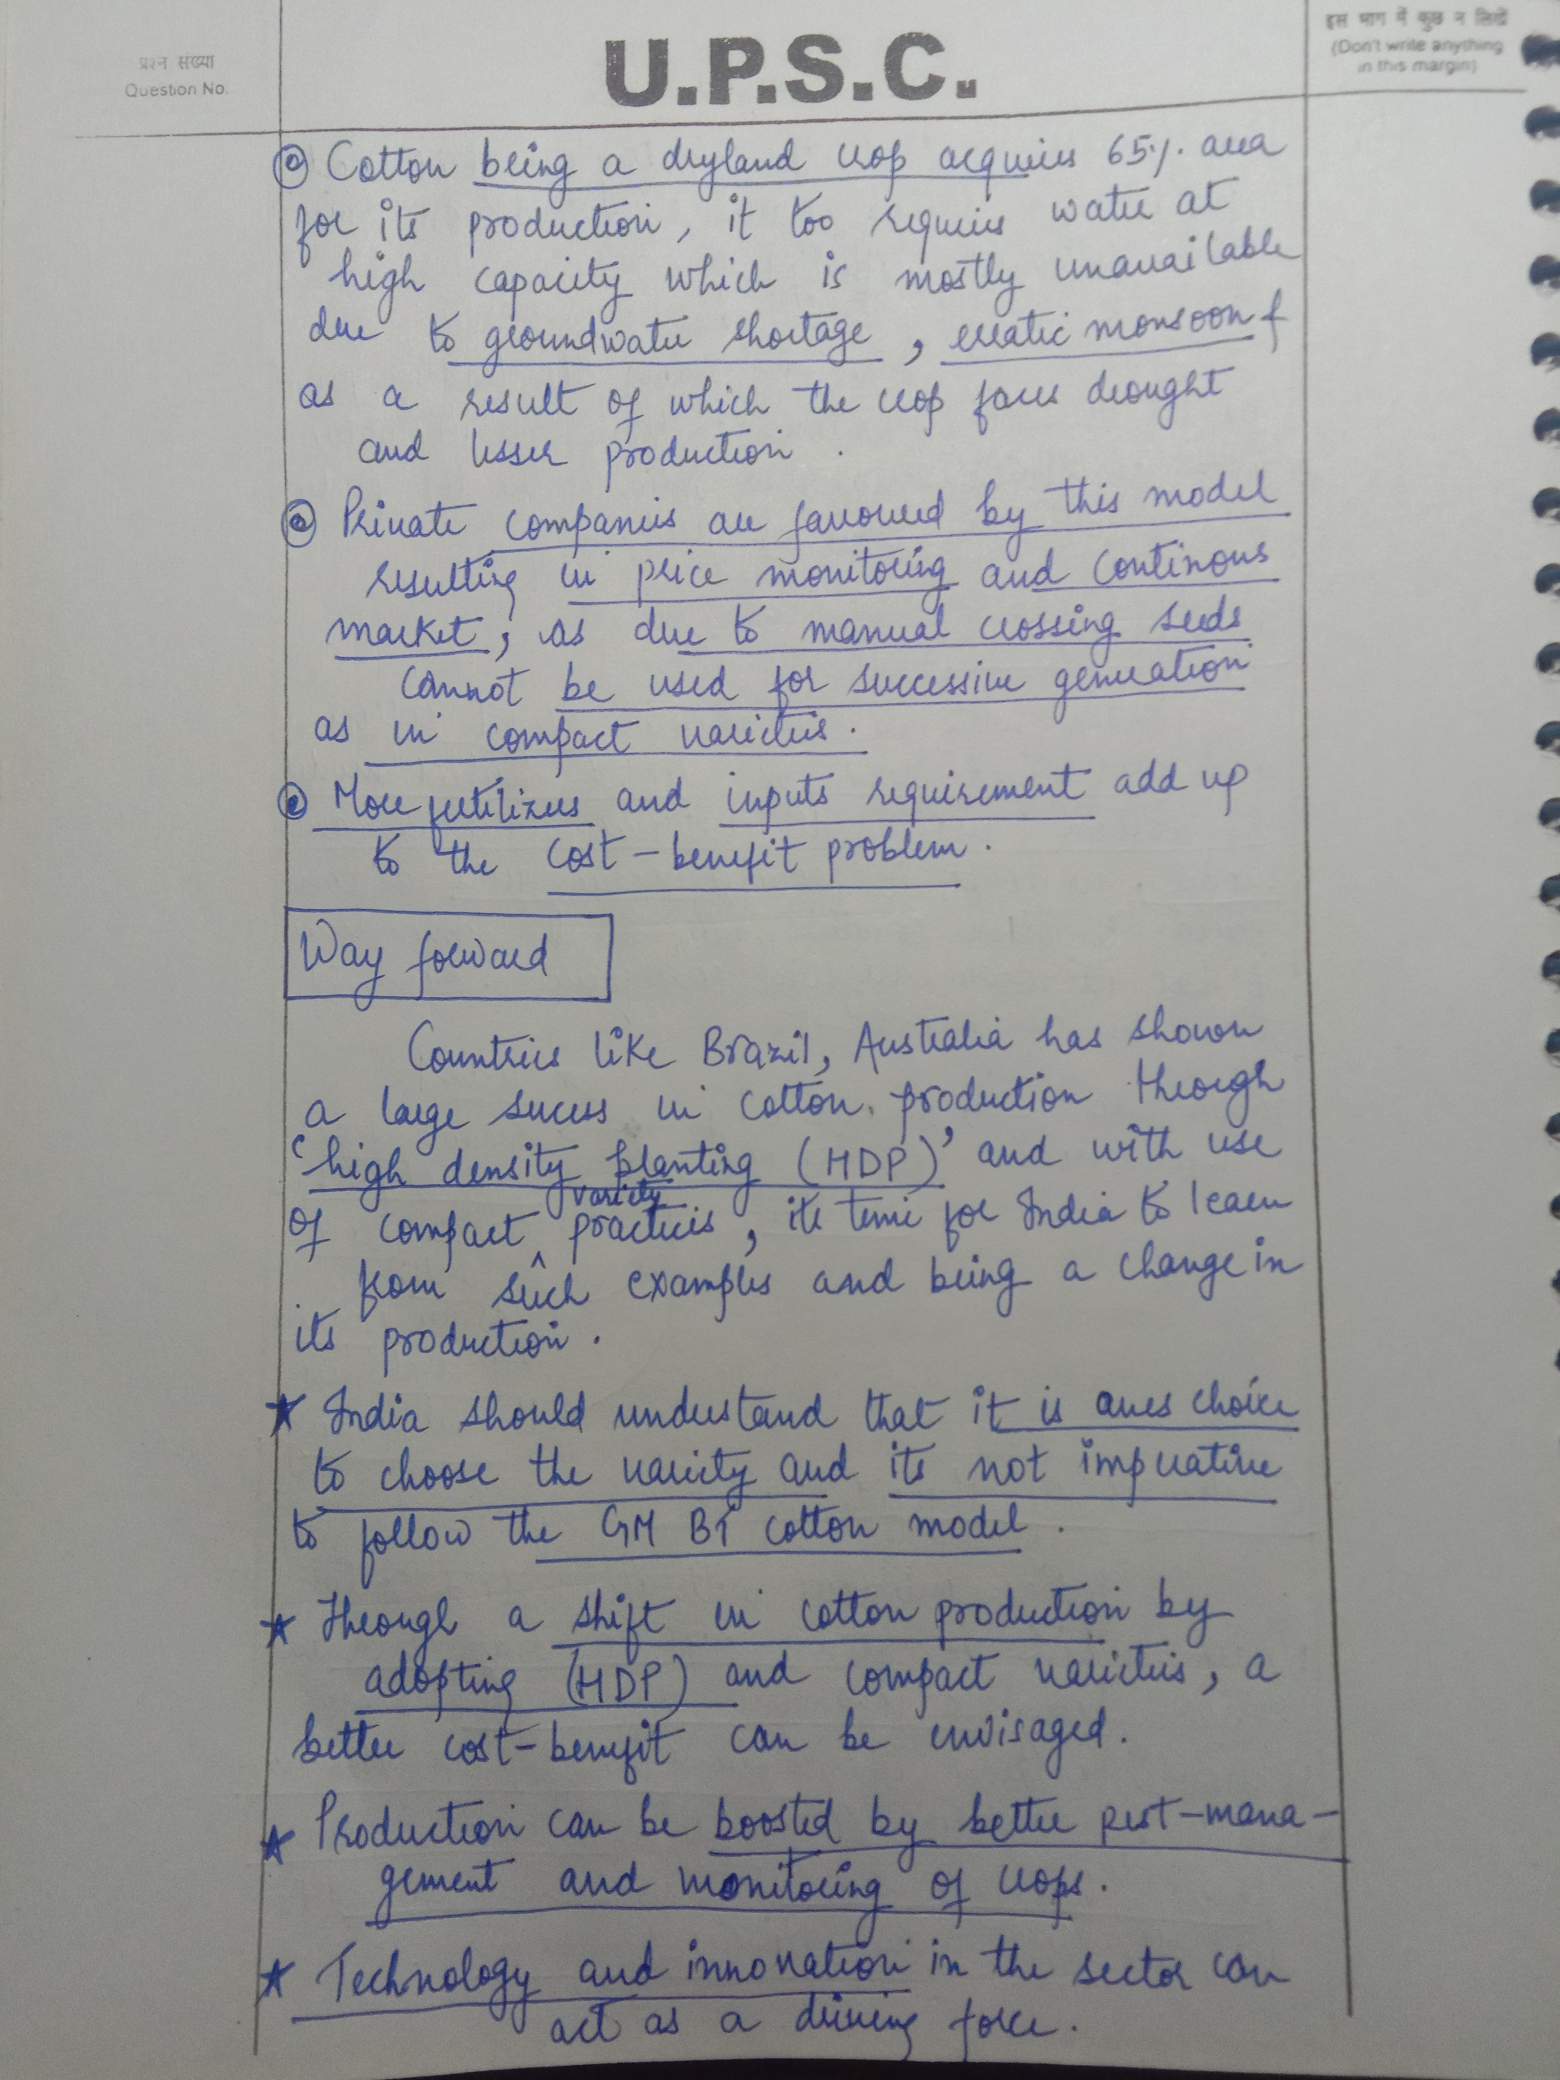 प्रश्न संख्या
Question No.
U.P.S.C.
इस भाग में कुछ न लिखें
(Don't write anything
in this margin)
Cotton being a dryland crop acquires 65% area
for its production, it too requires water at
high capacity which is mostly unavailable
due to groundwater shortage, erratic monsoon &
as a result of which the crop faces drought
and lesser production.
Private companies are favoured by this model
resulting in price monitoring and continous
market, as due to manual crossing seeds
cannot be used for successive generation
as in compact varieties.
More fertilizers and inputs requirement add up
to the cost-benefit problem.
Way forward
Countries like Brazil, Australia has shown
a large sucess in cotton production through
'high density planting (HDP)' and with use
of compact variety practices, its time for India to learn
from such examples and being a change in
its production.
★ India should understand that it is ones choice
to choose the variety and its not imperative
to follow the GM BT cotton model.
★ Through a shift in cotton production by
adopting (HDP) and compact varieties, a
better cost-benefit can be envisaged.
★ Production can be boosted by better pest-mana-
gement and monitoring of crops.
★ Technology and innovation in the sector can
act as a driving force.